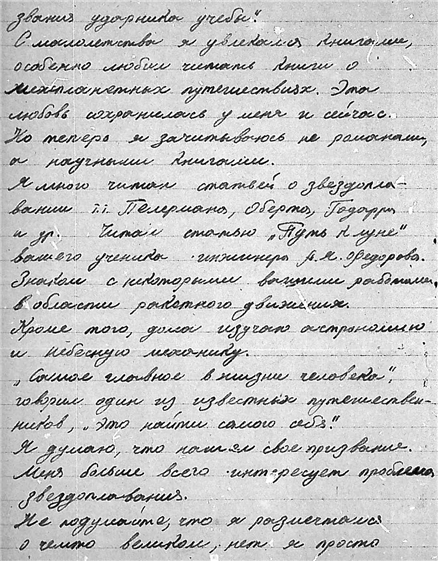 звания ударника учебы".
С малолетства я увлекался книгами,
особенно любил читать книги о
межпланетных путешествиях. Эта
любовь сохранилась у меня и сейчас.
Но теперь я зачитываюсь не романами,
а научными книгами.
Я много читал статьей о звездопла-
вании т.т. Пелермана, Оберта, Годарра
и др. Читал статью „Путь к луне"
вашего ученика инженера А.М. Федорова.
Знаком с некоторыми вашими работами
в области ракетного движения.
Кроме того, дома изучаю астрономию
и небесную механику.
„Самое главное в жизни человека",
говорил один из известных путешествен-
ников, „это найти самого себя".
Я думаю, что нашел свое призвание.
Меня больше всего интересует проблема
звездоплавания.
Не подумайте, что я размечтался
о чемто великом, нет я просто